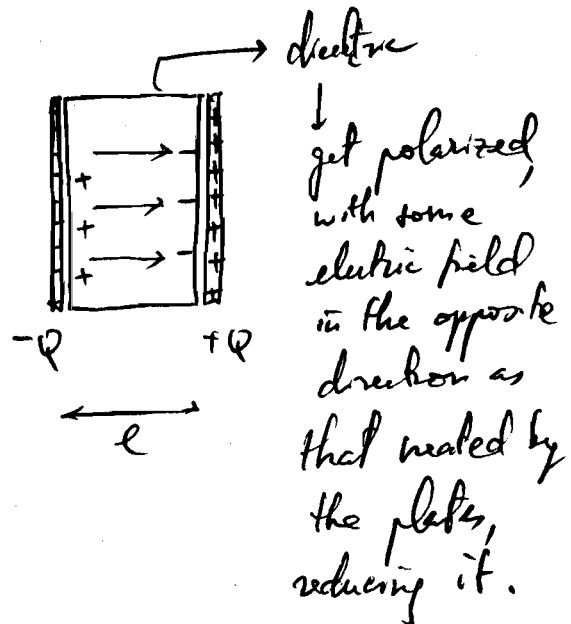 dielectric
get polarized,
with some
electric field
in the opposite
direction as
that created by
the plates,
reducing it.
-Q +Q
l